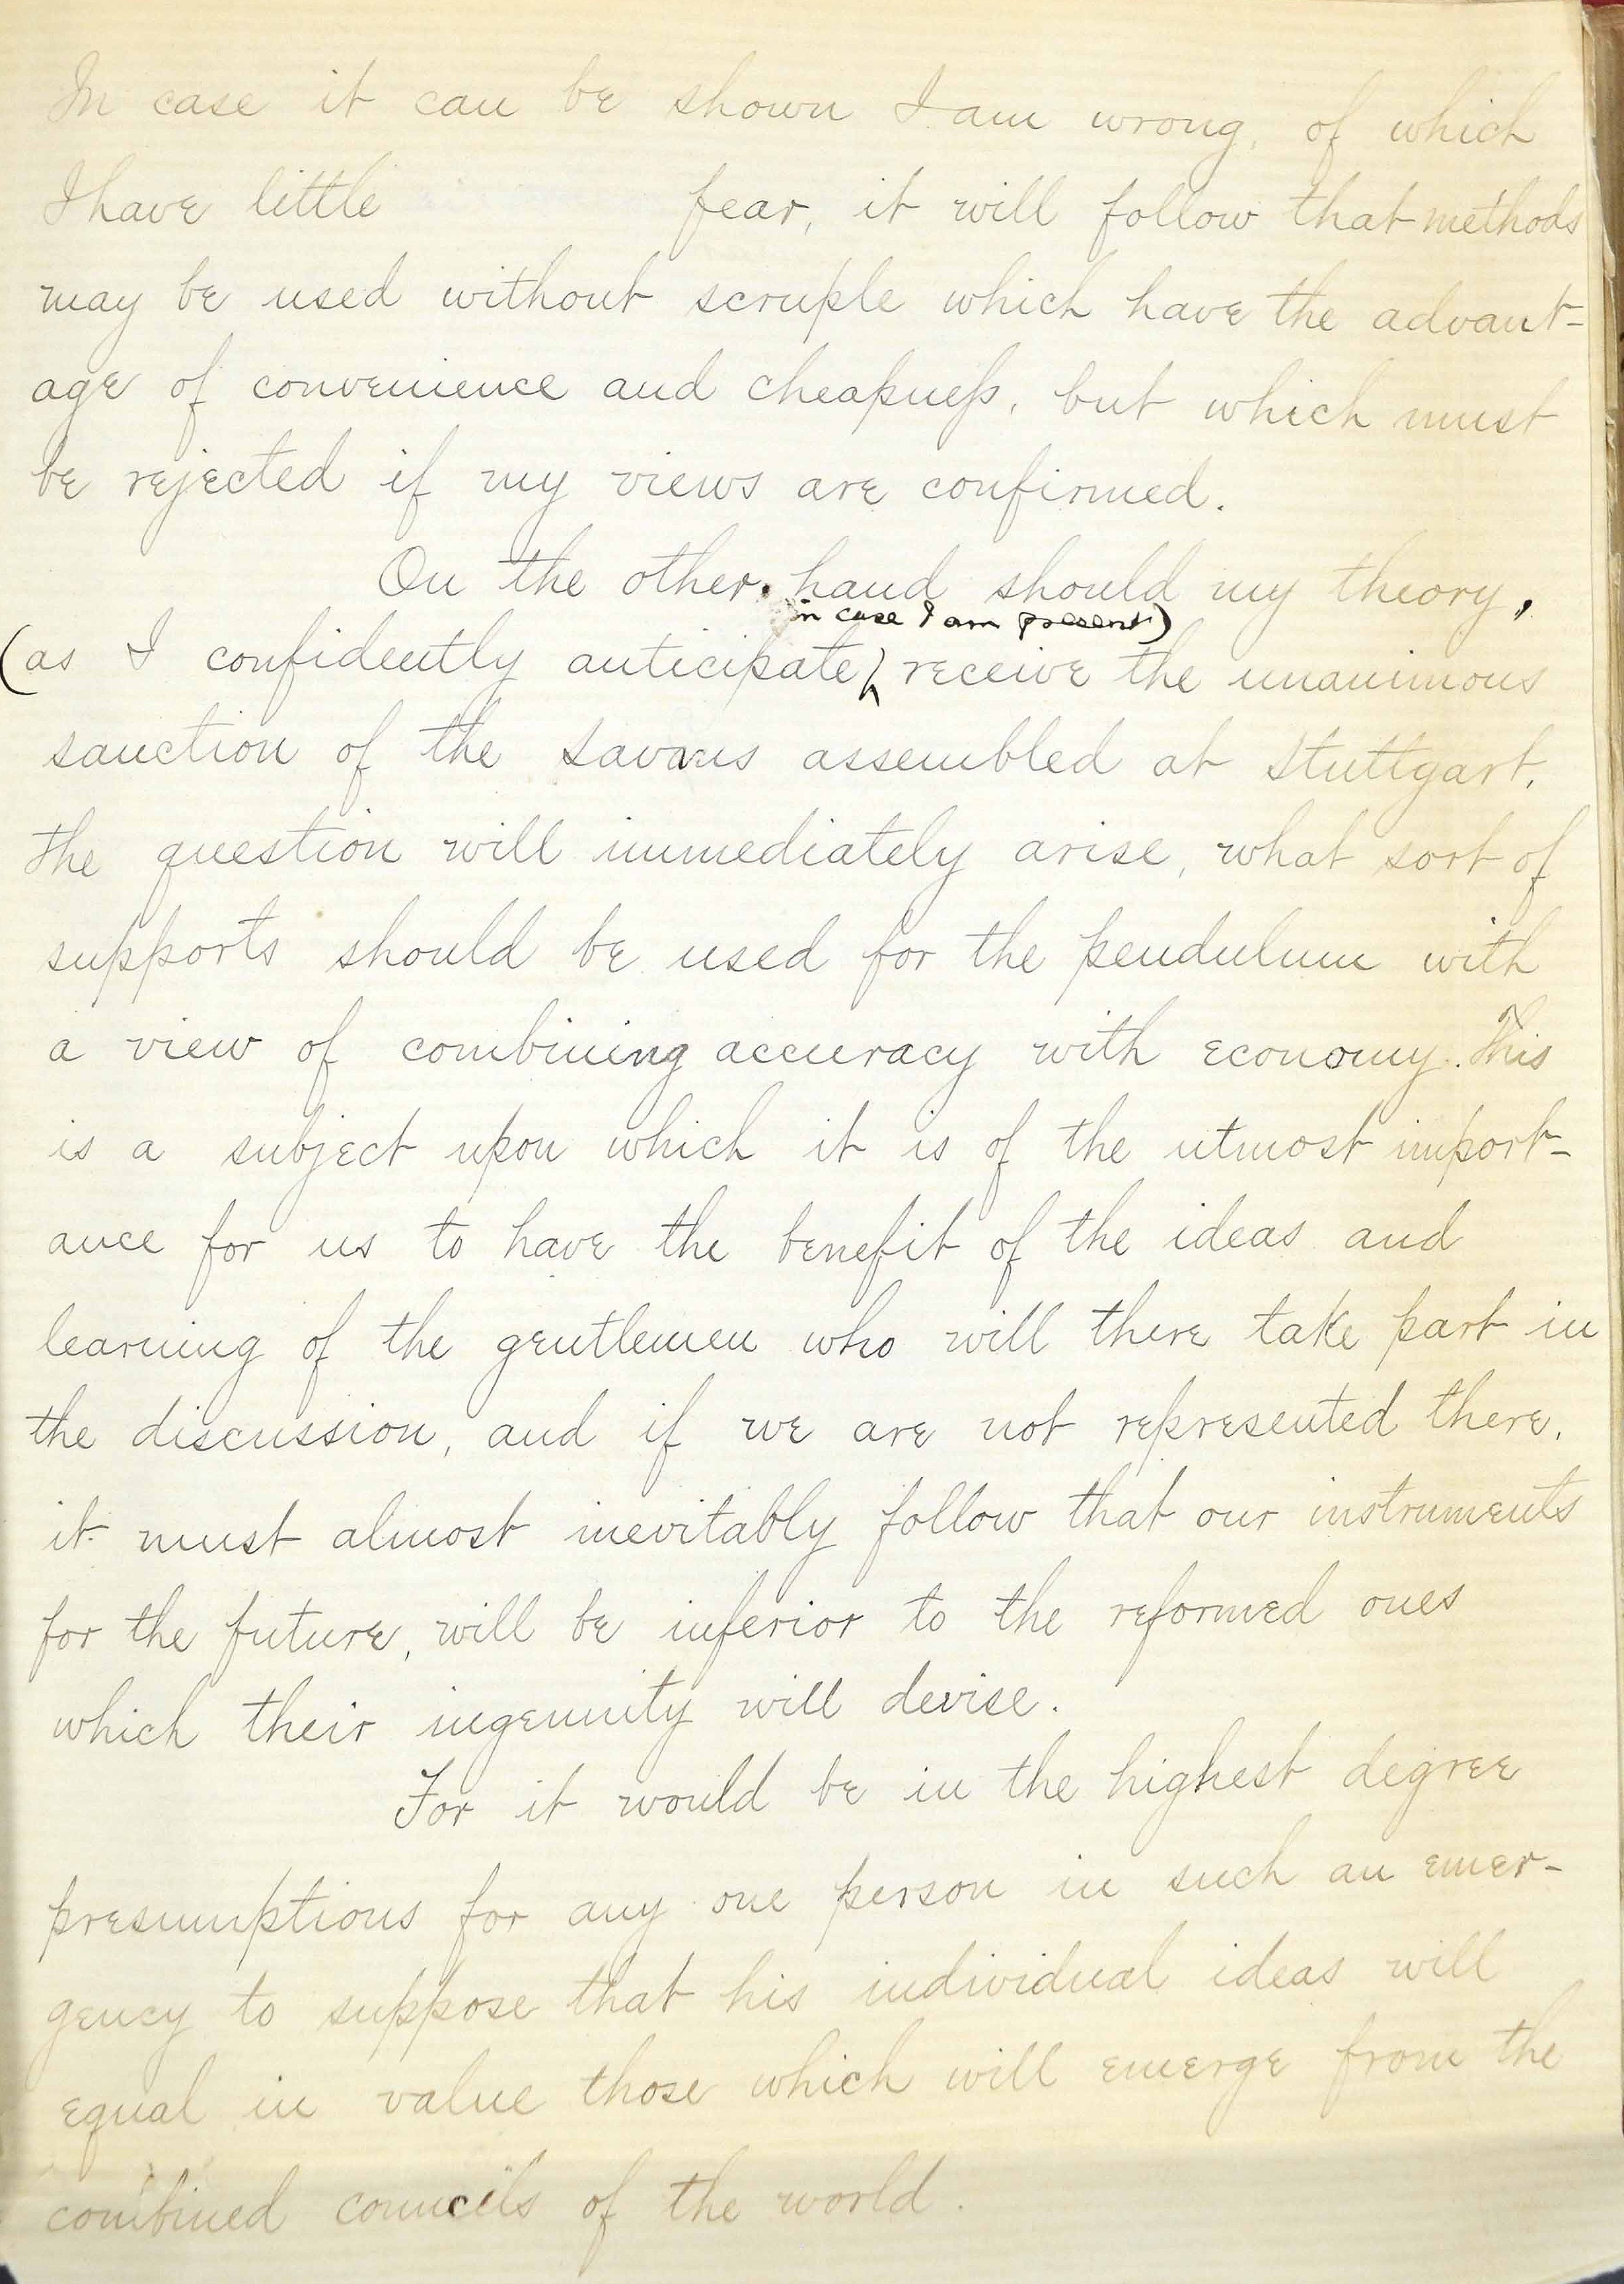 In case it can be shown I am wrong, of which
I have little fear, it will follow that methods
may be used without scruple which have the advant-
age of convenience and cheapneſs, but which must
be rejected if my views are confirmed.
On the other hand should my theory,
in case I am present)
(as I confidently anticipate, receive the unanimous
sanction of the savans assembled at Stuttgart,
the question will immediately arise, what sort of
supports should be used for the pendulum with
a view of combining accuracy with economy. This
is a subject upon which it is of the utmost import-
ance for us to have the benefit of the ideas and
learning of the gentlemen who will there take part in
the discussion, and if we are not represented there,
it must almost inevitably follow that our instruments
for the future, will be inferior to the reformed ones
which their ingenuity will devise.
For it would be in the highest degree
presumptious for any one person in such an emer-
gency to suppose that his individual ideas will
equal in value those which will emerge from the
combined councils of the world.